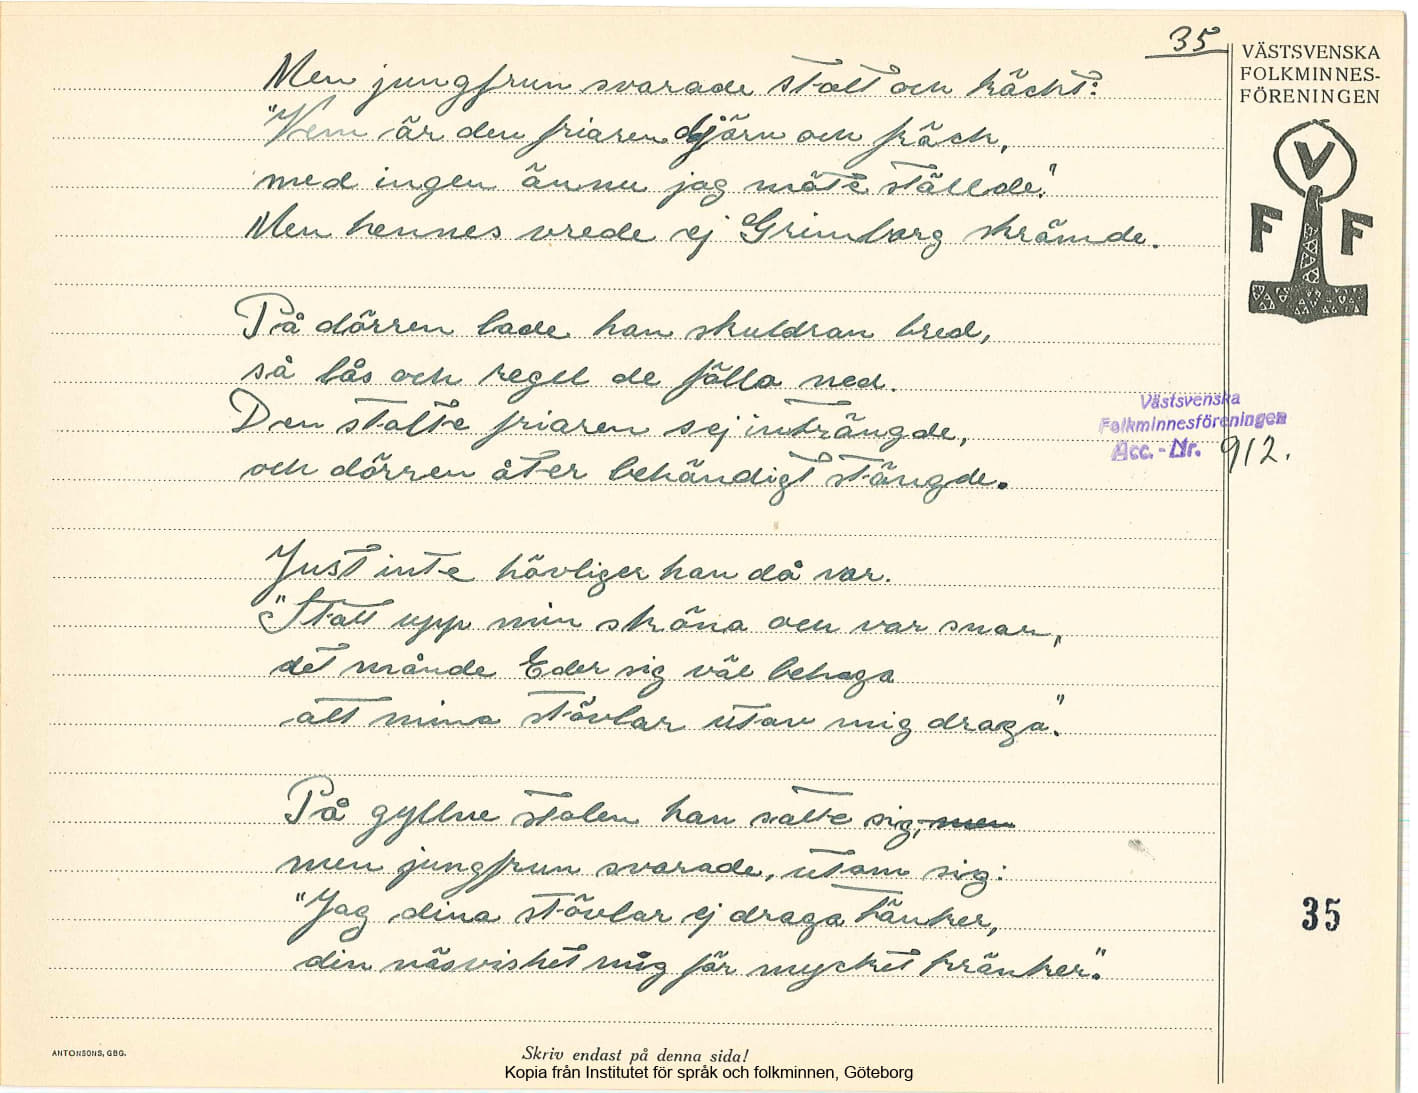 35
VÄSTSVENSKA
FOLKMINNES-
FÖRENINGEN
V
F F
Men jungfrun svarade stolt och käckt:
"Vem är den friaren djärv och fräck,
med ingen ännu jag möte ställde."
Men hennes vrede ej Grimborg skrämde.
På dörren lade han skuldran bred,
så lås och regel de fälla ned.
Den stolte friaren sej inträngde,
och dörren åter behändigt stängde.
Västsvenska
Folkminnesföreningen
Acc.-Nr. 912.
Just inte hövliger han då var.
"Statt upp min sköna och var snar,
det månde Eder sig väl behaga
att mina stövlar utav mig draga."
På gyllne stolen han satte sig, men
men jungfrun svarade, utom sig:
"Jag dina stövlar ej draga tänker,
din näsvishet mig för mycket kränker."
35
ANTONSONS, GBG.
Skriv endast på denna sida!
Kopia från Institutet för språk och folkminnen, Göteborg